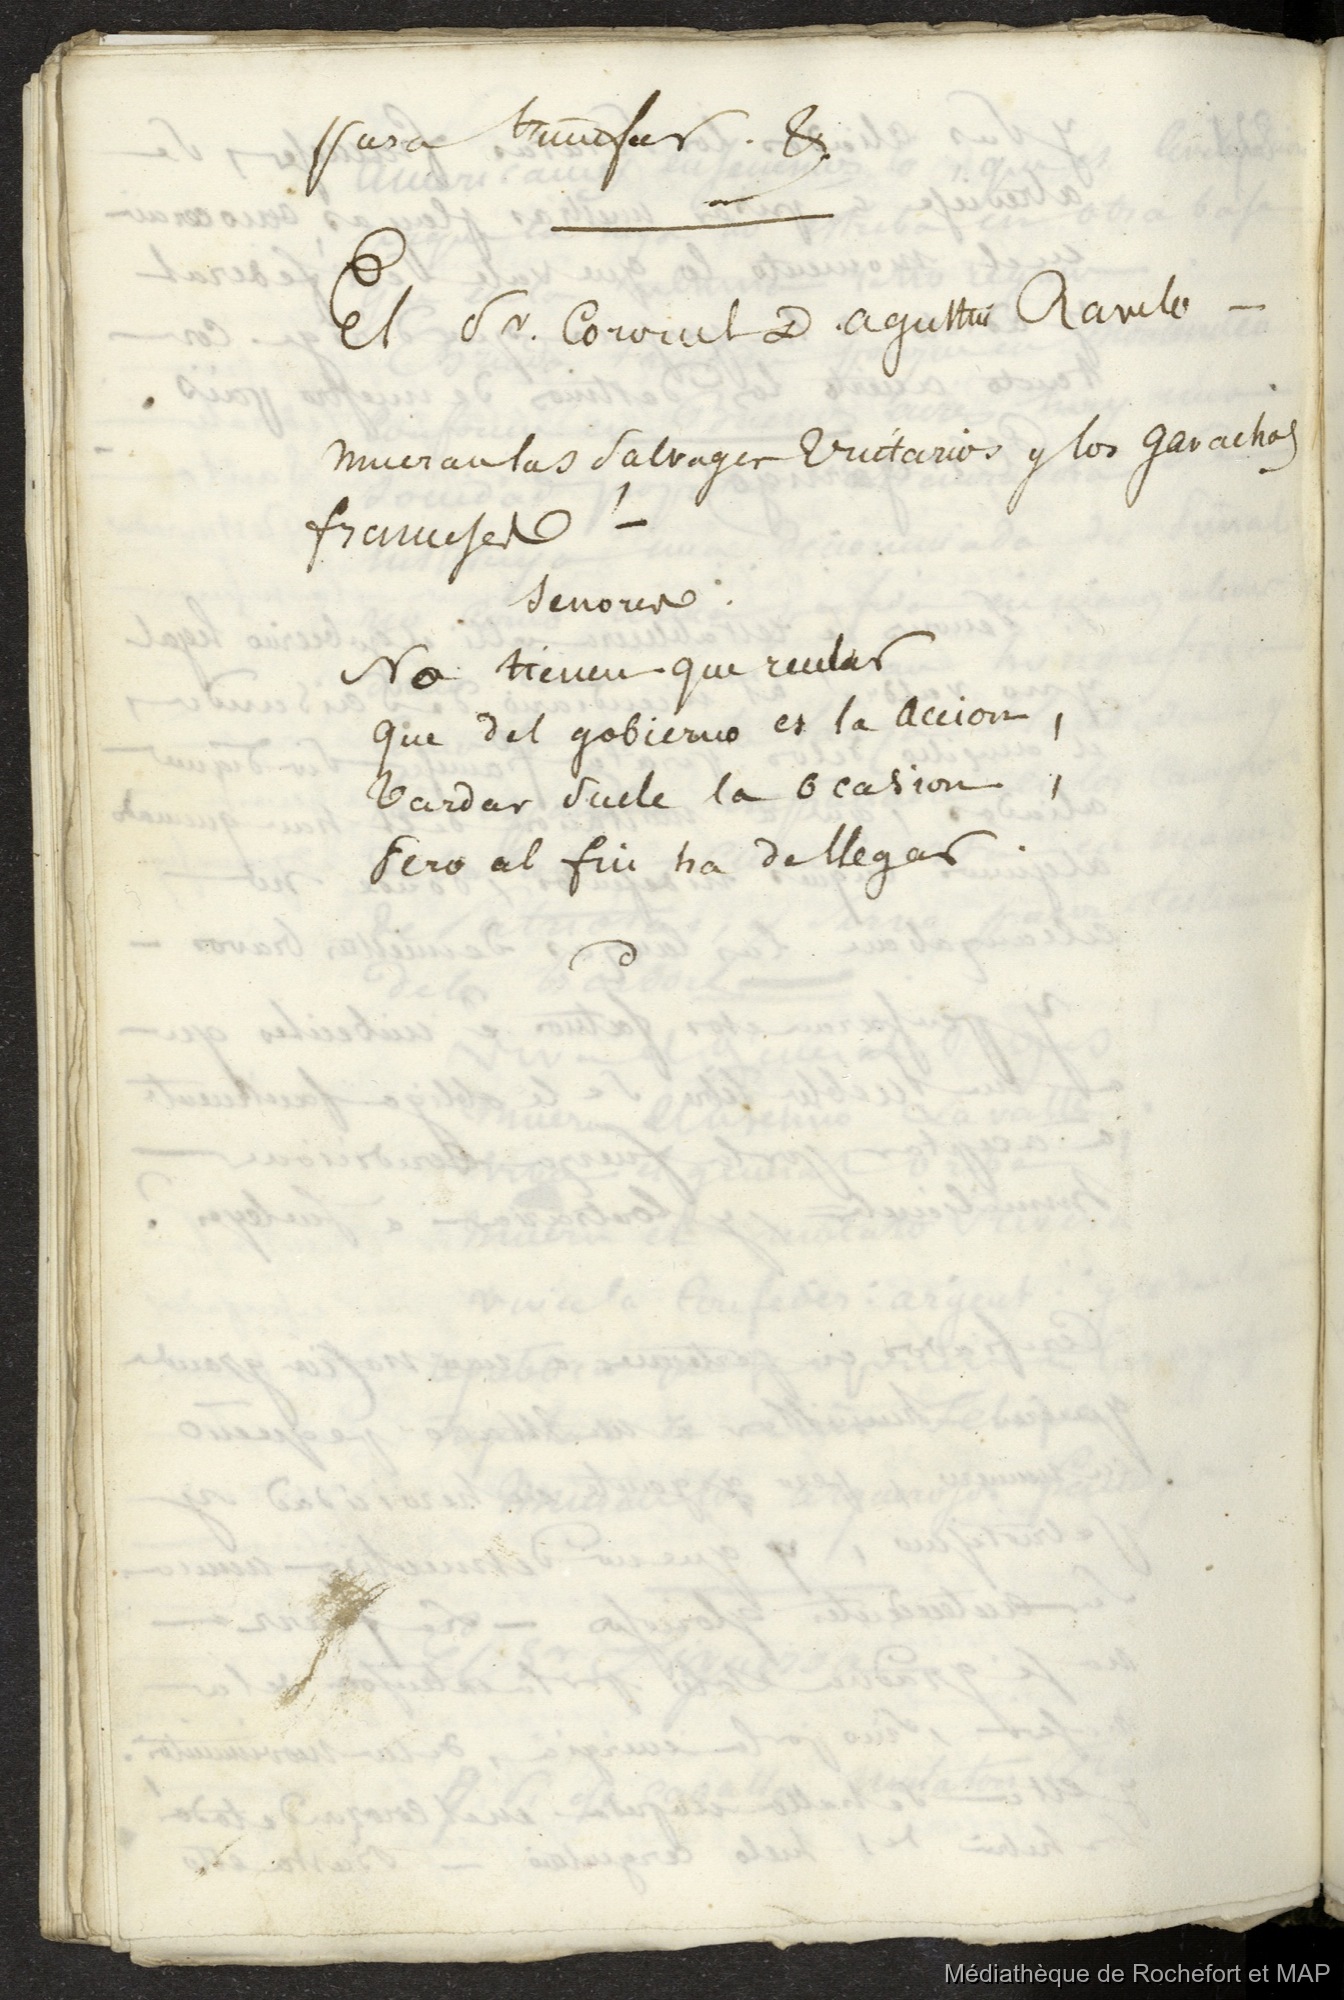 para triunfar. &.
El Sr. Coronel D. Agustin Ravelo –
mueran las Salvages Unitarios y los gavachos
franceses ! –
Senores :
No tienen que
que del gobierno es la accion ,
tardar suele la ocasion ,
Pero al fin ha de llegar .
Médiathèque de Rochefort et MAP